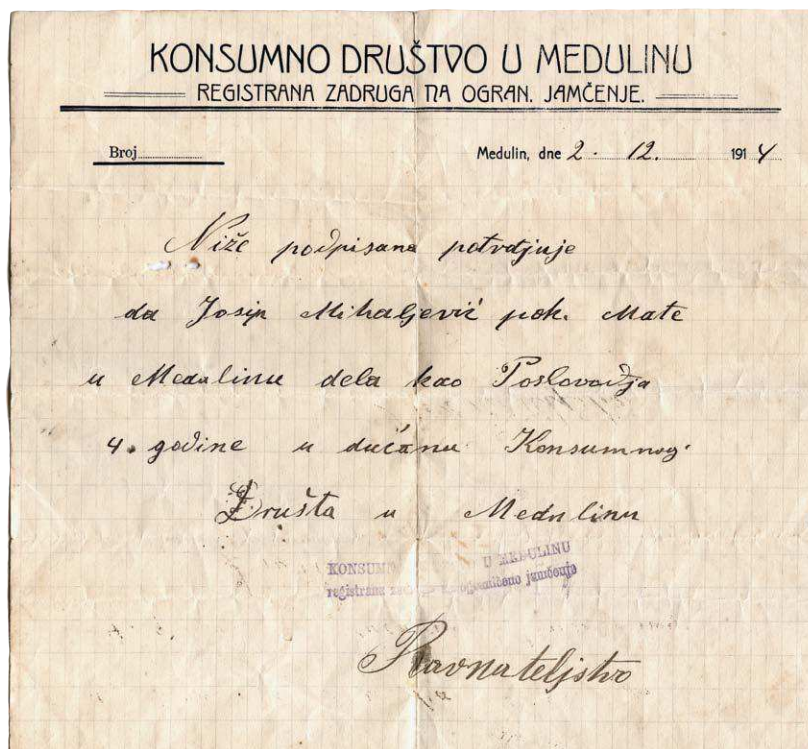 KONSUMNO DRUŠTVO U MEDULINU
REGISTRANA ZADRUGA NA OGRAN. JAMČENJE.
Broj
Medulin, dne 2. 12. 1914
Niže podpisana potvrdjuje
da Josip Mihaljević pok. Mate
u Medulinu dela kao Poslovodja
4. godine u dućanu Konsumnog
Društa u Medulinu
KONSUM U MEDULINU
registrana jamčenje
Ravnateljstvo